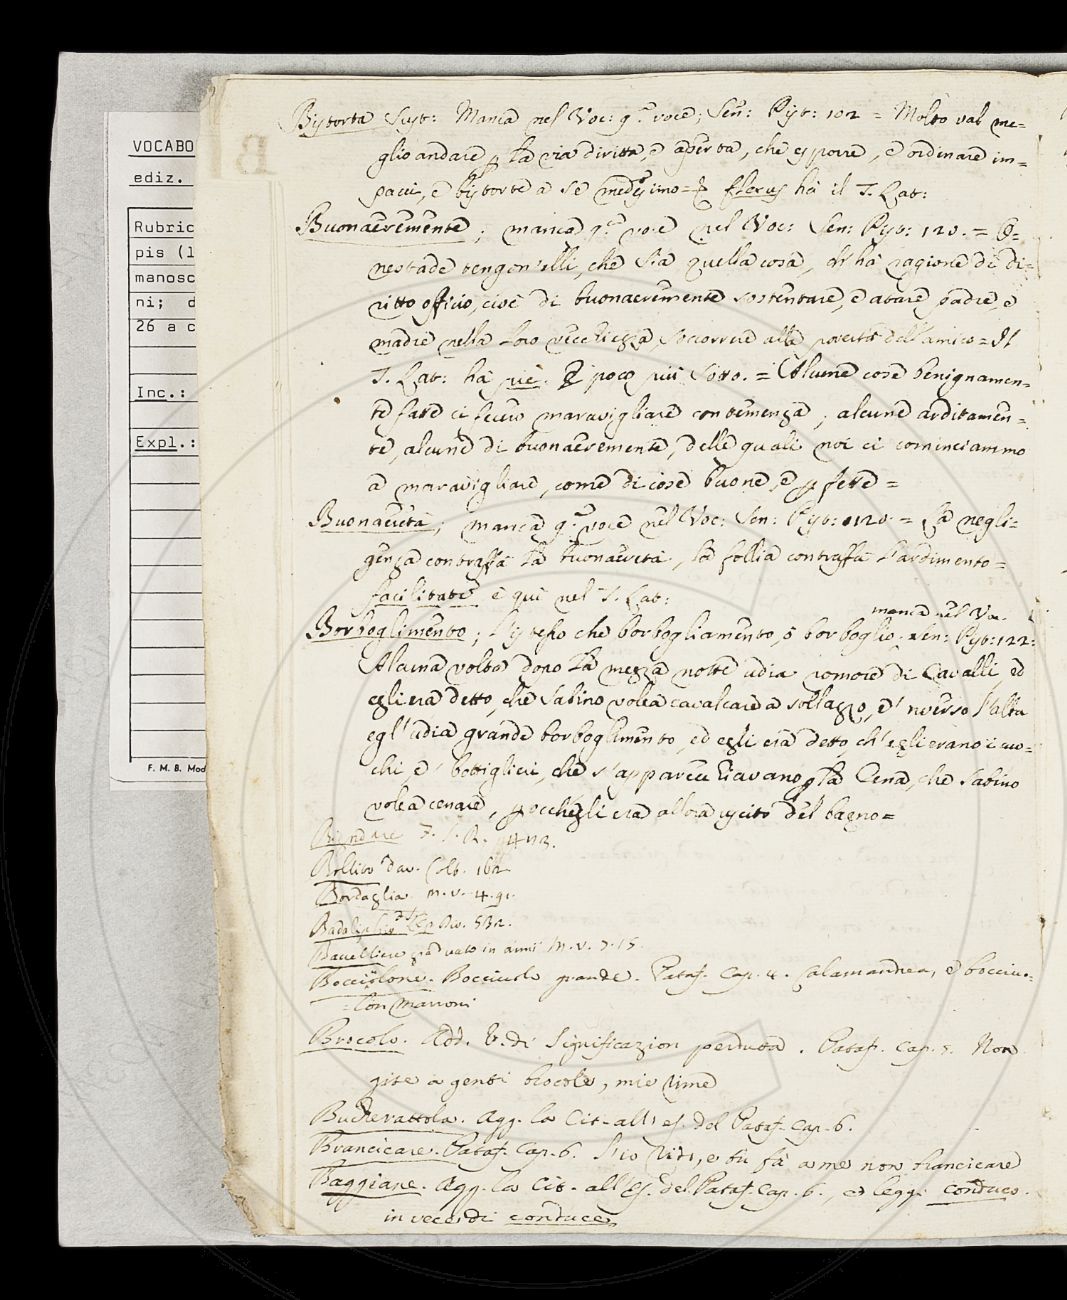 VOCABO
ediz.
Rubric
pis (l
manosc
ni; d
26 a c
Inc.:
Expl.:
F. M. B. Mod
B
Bistorta Sust: Manca nel Voc: q.ª voce; Sen: Pist: 102 = Molto val me=
glio andare p la via diritta, e aperta, che esporre, e ordinare im=
pacci, e bistorte a se medesimo= flexus hà il T. Lat:
Buonaeremente; manca q.ª voce nel Voc: Sen: Pist: 120. = O=
nestade tengon'elli, che sia quella cosa, ch'hà ragione di di=
ritto officio, cioè di buonaeremente sostentare, e atare padre, e
madre nella loro vecchiezza, soccorrere alla povertà dell'amico = Il
T. Lat: hà pie. E poco più sotto. = Alcune cose benignamen=
te fatte ci fecero maravigliare contemenza, alcune arditamen=
te, alcune di buonaeremente, delle quali noi ci cominciammo
a maravigliare, come di cose buone, e pfette =
Buonaerità; manca q.ª voce nel Voc: Sen: Pist: 120. = La negli=
genza contraffà la buonaerità, la follia contraffà l'ardimento=
facilitate è qui nel T. Lat:
manca nel Voc.
Borboglimento; l'istesso che borbogliamento, ò borboglio. Sen: Pist: 122:
Alcuna volta dopo la mezza notte udia romore di Cavalli, ed
egli era detto, che Satino volea cavalcare a sollazzo, e' nverso l'alba
egl'udia grande borboglimento, ed egli era detto ch'eglierano i cuo=
chi, e' bottiglieri, che s'apparecchiavano p la Cena, che Satino
volea cenare, pocch'egli era allora uscito del bagno=
Biondare
Bollito Dav. Colt. 162
Bordaglia. M. V. 4. 91.
532.
in armi M. V. 7. 15.
Bocciolone. Bocciuolo grande. Pataf. Cap. 4. Calamandrea, e bocciuo=
=lon marroni
Brocolo. Add. V. di significazion perduta. Pataf. Cap. 5. Non
gite a genti brocole, mie rime
Bucherattola. Agg. la Cit. all' es. del Pataf. Cap. 6.
Brancicare. Pataf. Cap. 6. S'io vidi, e tu fà a me non brancicare
Baggiane. Agg. la Cit. all' Es. del Pataf. Cap. 6., ed leggi conduco.
in vece di conduce